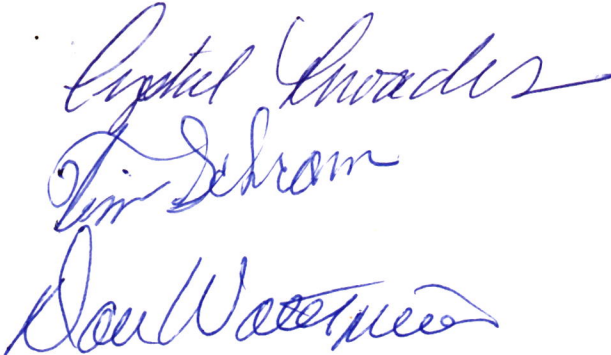 Crystal Rhoades
Tim Schram
Dan Watermeier